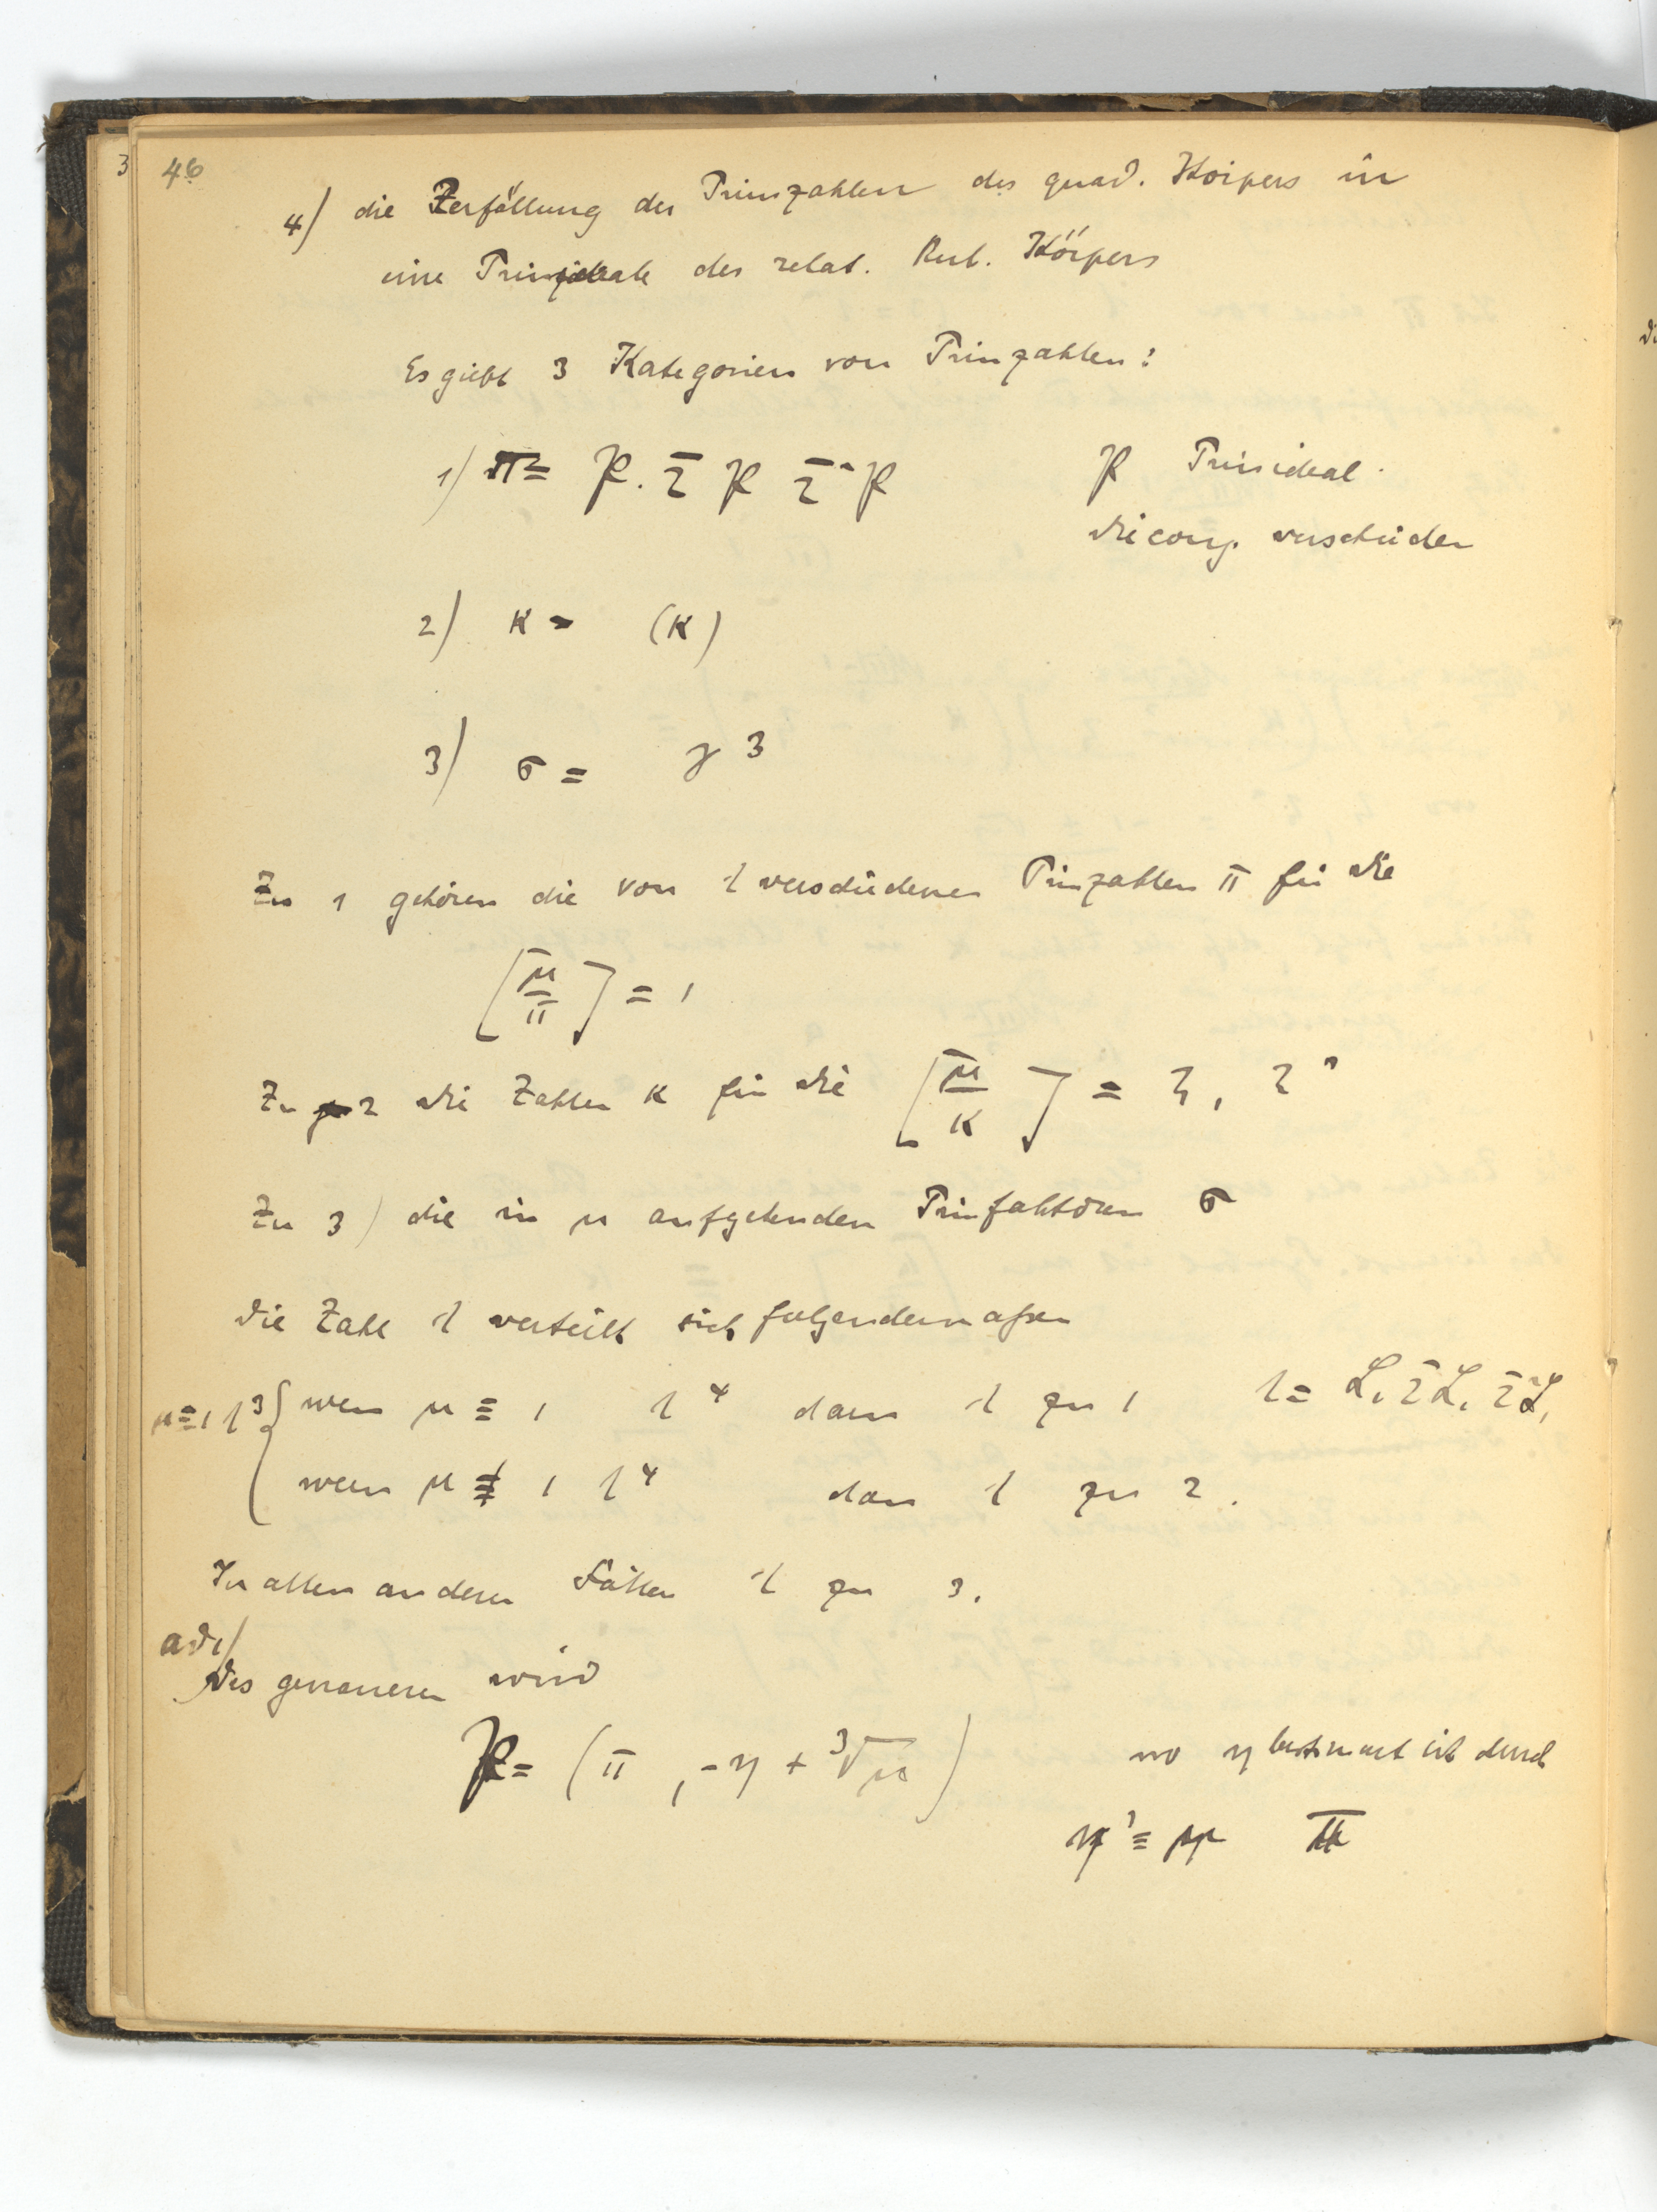 46
4) die Zerfällung der Primzahlen des quad. Körpers in
eine Primideale des relat. Kub. Körpers
Es giebt 3 Kategorien von Primzahlen:
1) π = P . Σ̄ P Σ̄² P P Primideal.
die conj. verschieden
2) κ = (κ)
3) σ = 𝔶 ³
Zu 1 gehören die von λ verschiedenen Primzahlen π für die
[μ/π] = 1
Zu 2 die Zahlen κ für die [μ/κ] = ζ, ζ²
Zu 3) die in μ aufgehenden Primfaktoren σ
die Zahl λ verteilt sich folgendermaßen
μ≡1 λ³ { wenn μ ≡ 1 λ⁴ dann λ zu 1 λ = L, Σ̄L, Σ̄²L,
wenn μ ≢ 1 λ⁴ dann λ zu 2.
In allen anderen Fällen λ zu 3.
ad 1)
Des genaueren wird
P = (π, -η + ³√μ) wo η bestimmt ist durch
η³ ≡ μ π